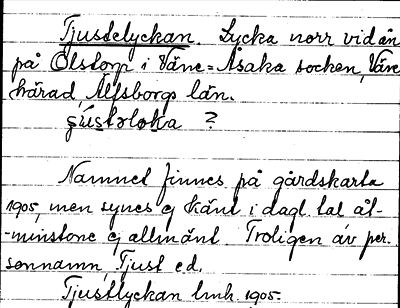 Tjustelyckan. Lycka norr vid ån
på Olstorp i Väne-Åsaka socken, Väne
härad, Älfsborgs län.
ʂústəloka ?
Namnet finnes på gårdskarta
1905, men synes ej känt i dagl. tal åt-
-minstone ej allmänt. Troligen av per.
sonnamn, Tjust ed.
Tjustlyckan lmk. 1905.